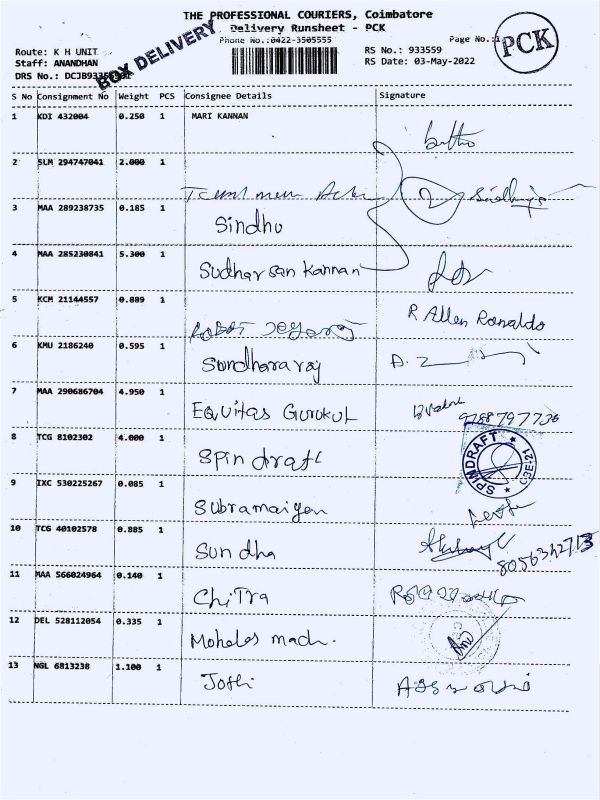 THE PROFESSIONAL COURIERS, Coimbatore
Delivery Runsheet - PCK
Phone No.:0422-3505555
Page No.:1
PCK
BOX DELIVERY
Route: K H UNIT
Staff: ANANDHAN
DRS No.: DCJB933
RS No.: 933559
RS Date: 03-May-2022
S No Consignment No Weight PCS Consignee Details Signature
1 KDI 432004 0.250 1 MARI KANNAN
2 SLM 294747041 2.000 1
3 MAA 289238735 0.185 1
Sindhu
4 MAA 285230841 5.300 1
Sudharsan Kannan
5 KCM 21144557 0.889 1
R Allen Ronaldo
6 KMU 2186240 0.595 1
Sundhararaj
7 MAA 290686704 4.950 1
Equitas Gurukul
9788797736
8 TCG 8102302 4.000 1
Spin draft
SPINDRAFT CBE-21
9 IXC 530225267 0.085 1
Subramaiyan
10 TCG 40102578 0.885 1
Sundha
8056342713
11 MAA 566024964 0.140 1
Chitra
12 DEL 528112054 0.335 1
13 NGL 6813238 1.100 1
Jothi